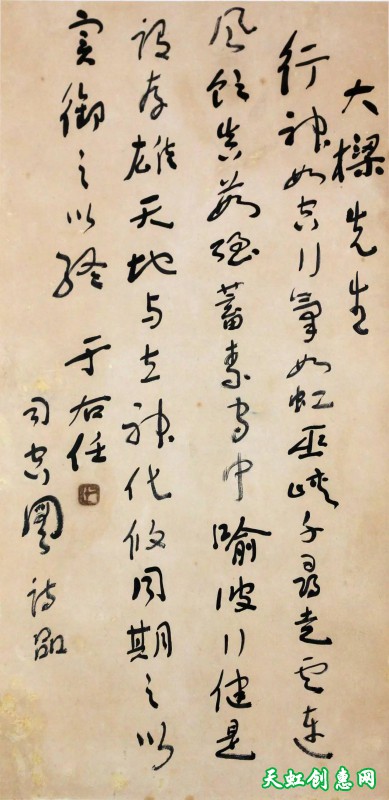 大樑先生
行神如空行氣如虹巫峽千尋走雲連
風飲真茹強蓄素守中喻彼行健是
謂存雄天地与立神化攸同期之以
實御之以終 于右任
司空圖詩
天虹创惠网